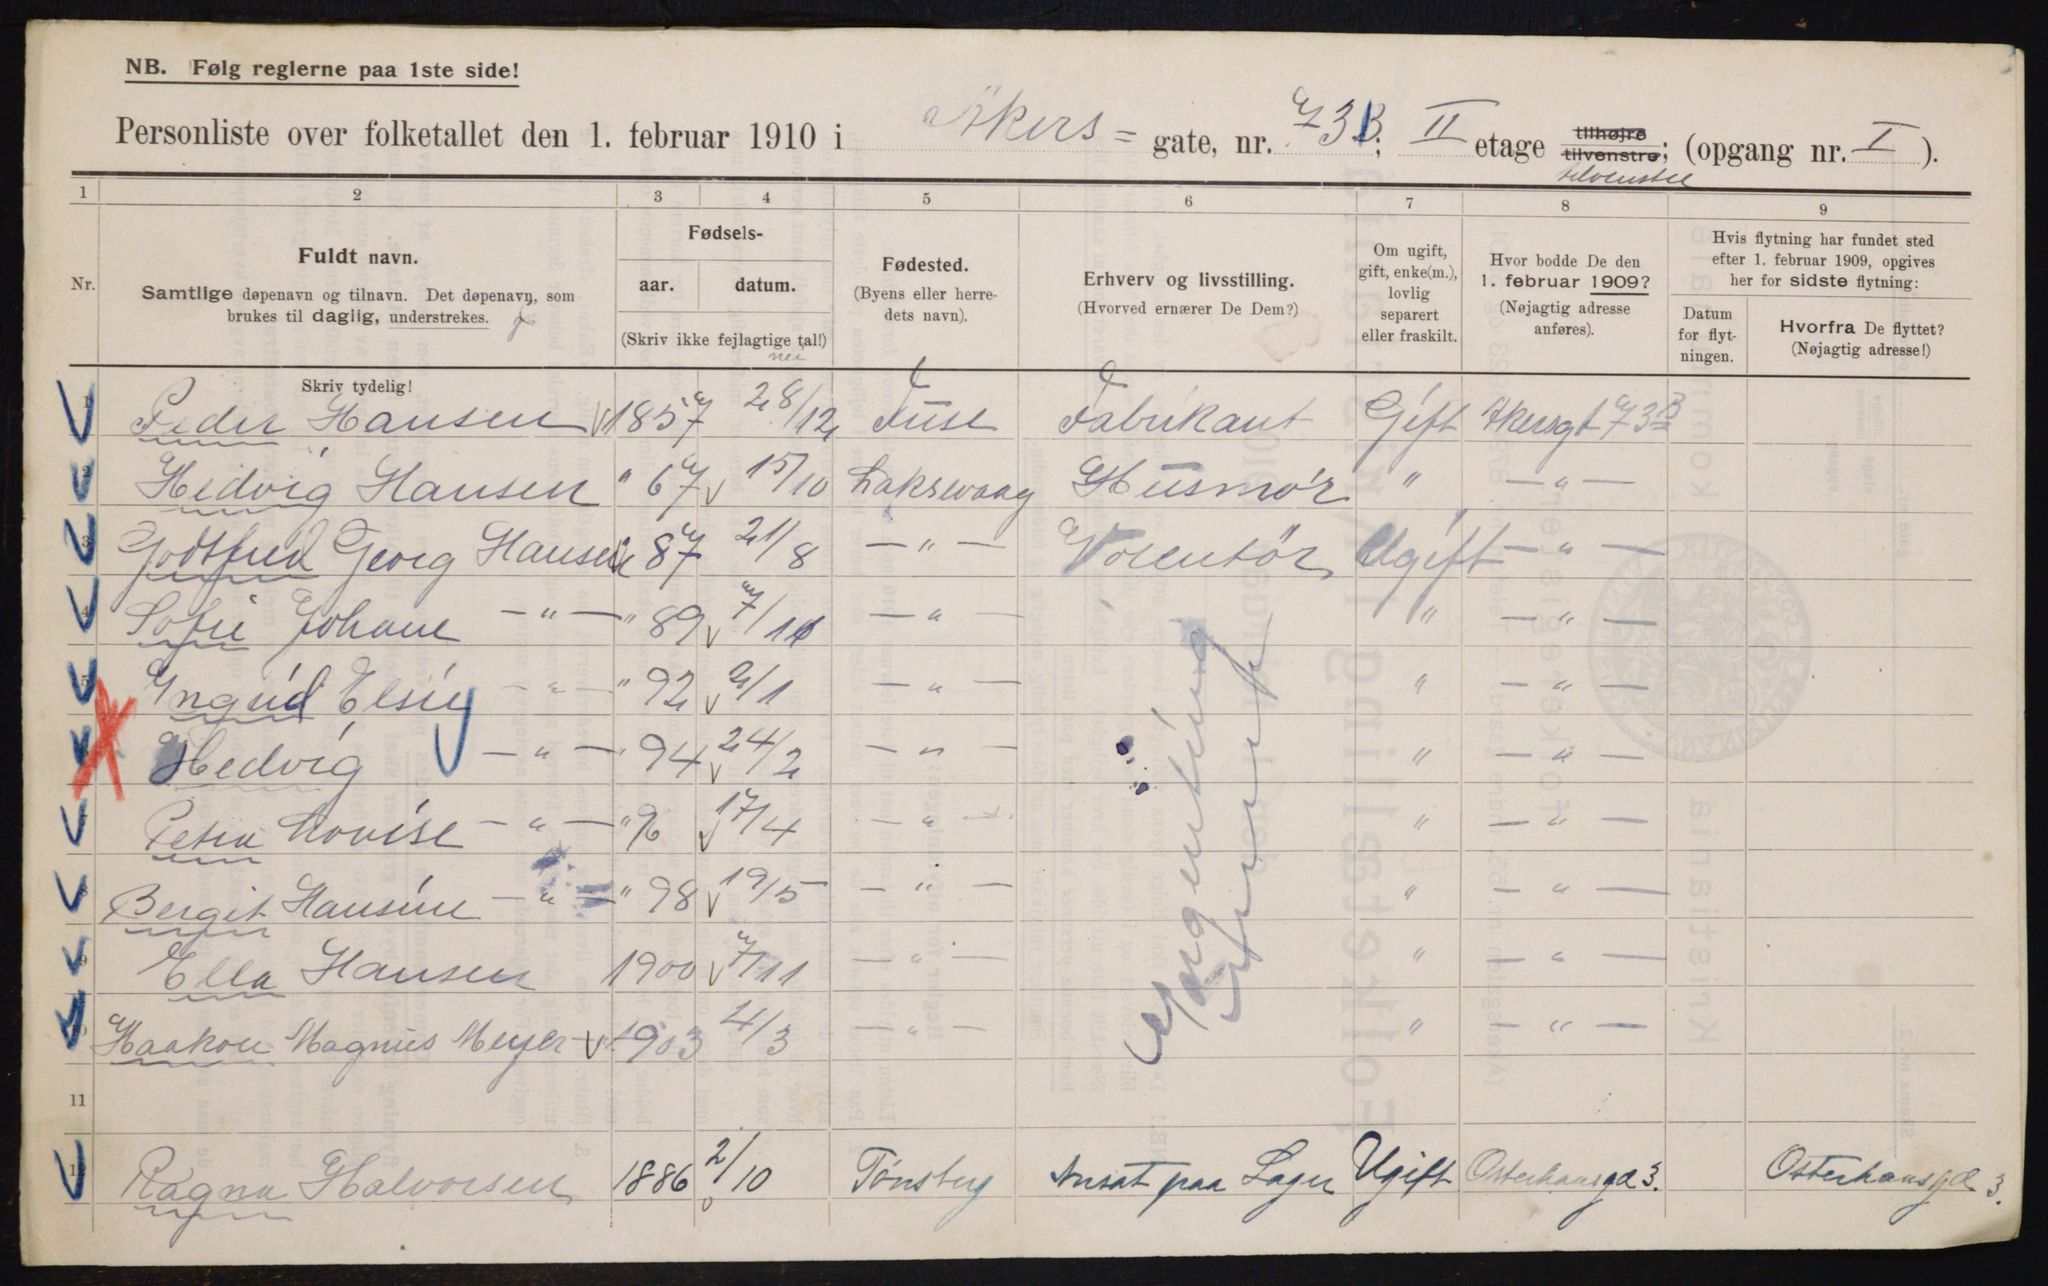 NB. Følg reglerne paa 1ste side!
Personliste over folketallet den 1. februar 1910 i Akers = gate, nr. 73B; II etage tilhøjre tilvenstre; (opgang nr. I ).
tilvenstre
1 2 3 4 5 6 7 8 9
Nr.
Fuldt navn.
Samtlige døpenavn og tilnavn. Det døpenavn, som
brukes til daglig, understrekes.
Skriv tydelig!
Fødsels-
aar. datum.
(Skriv ikke fejlagtige tal!)
Fødested.
(Byens eller herre-
dets navn).
Erhverv og livsstilling.
(Hvorved ernærer De Dem?)
Om ugift,
gift, enke(m.),
lovlig
separert
eller fraskilt.
Hvor bodde De den
1. februar 1909?
(Nøjagtig adresse
anføres).
Hvis flytning har fundet sted
efter 1. februar 1909, opgives
her for sidste flytning:
Datum
for flyt-
ningen.
Hvorfra De flyttet?
(Nøjagtig adresse!)
1 Peder Hansen 1857 28/12 Fuse Fabrikant Gift Akersgt 73B
2 Hedvig Hansen " 67 15/10 Laksevaag Husmor " — " —
3 Godtfred Georg Hansen " 87 21/8 — " — Volentør Ugift — " —
4 Sofie Johane — " — " 89 7/11 — " — " — " —
5 Yngrid Elsiy — " — " 92 2/1 — " — " — " —
Hedvig — " — " 94 24/2 — " — " — " —
7 Petra Lovise — " — " 96 17/4 — " — " — " —
8 Bergit Hansine — " — " 98 19/5 — " — " — " —
9 Ella Hansen 1900 7/11 — " — " — " —
10 Haakon Magnus Meyer 1903 4/3 — " — " — " —
Ingenting
11
12 Ragna Halvorsen 1886 2/10 Tønsberg Ansat paa Lager Ugift Osterhausgd 3. Osterhausgd 3.